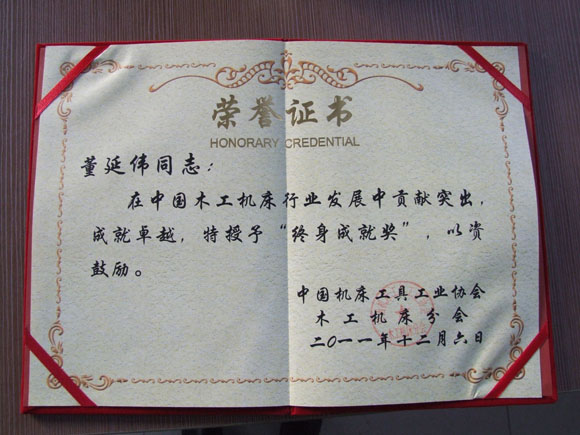 荣誉证书
HONORARY CREDENTIAL
董延伟同志：
在中国木工机床行业发展中贡献突出，
成就卓越，特授予“终身成就奖”，以资
鼓励。
中国机床工具工业协会
木工机床分会
二〇一一年十二月六日